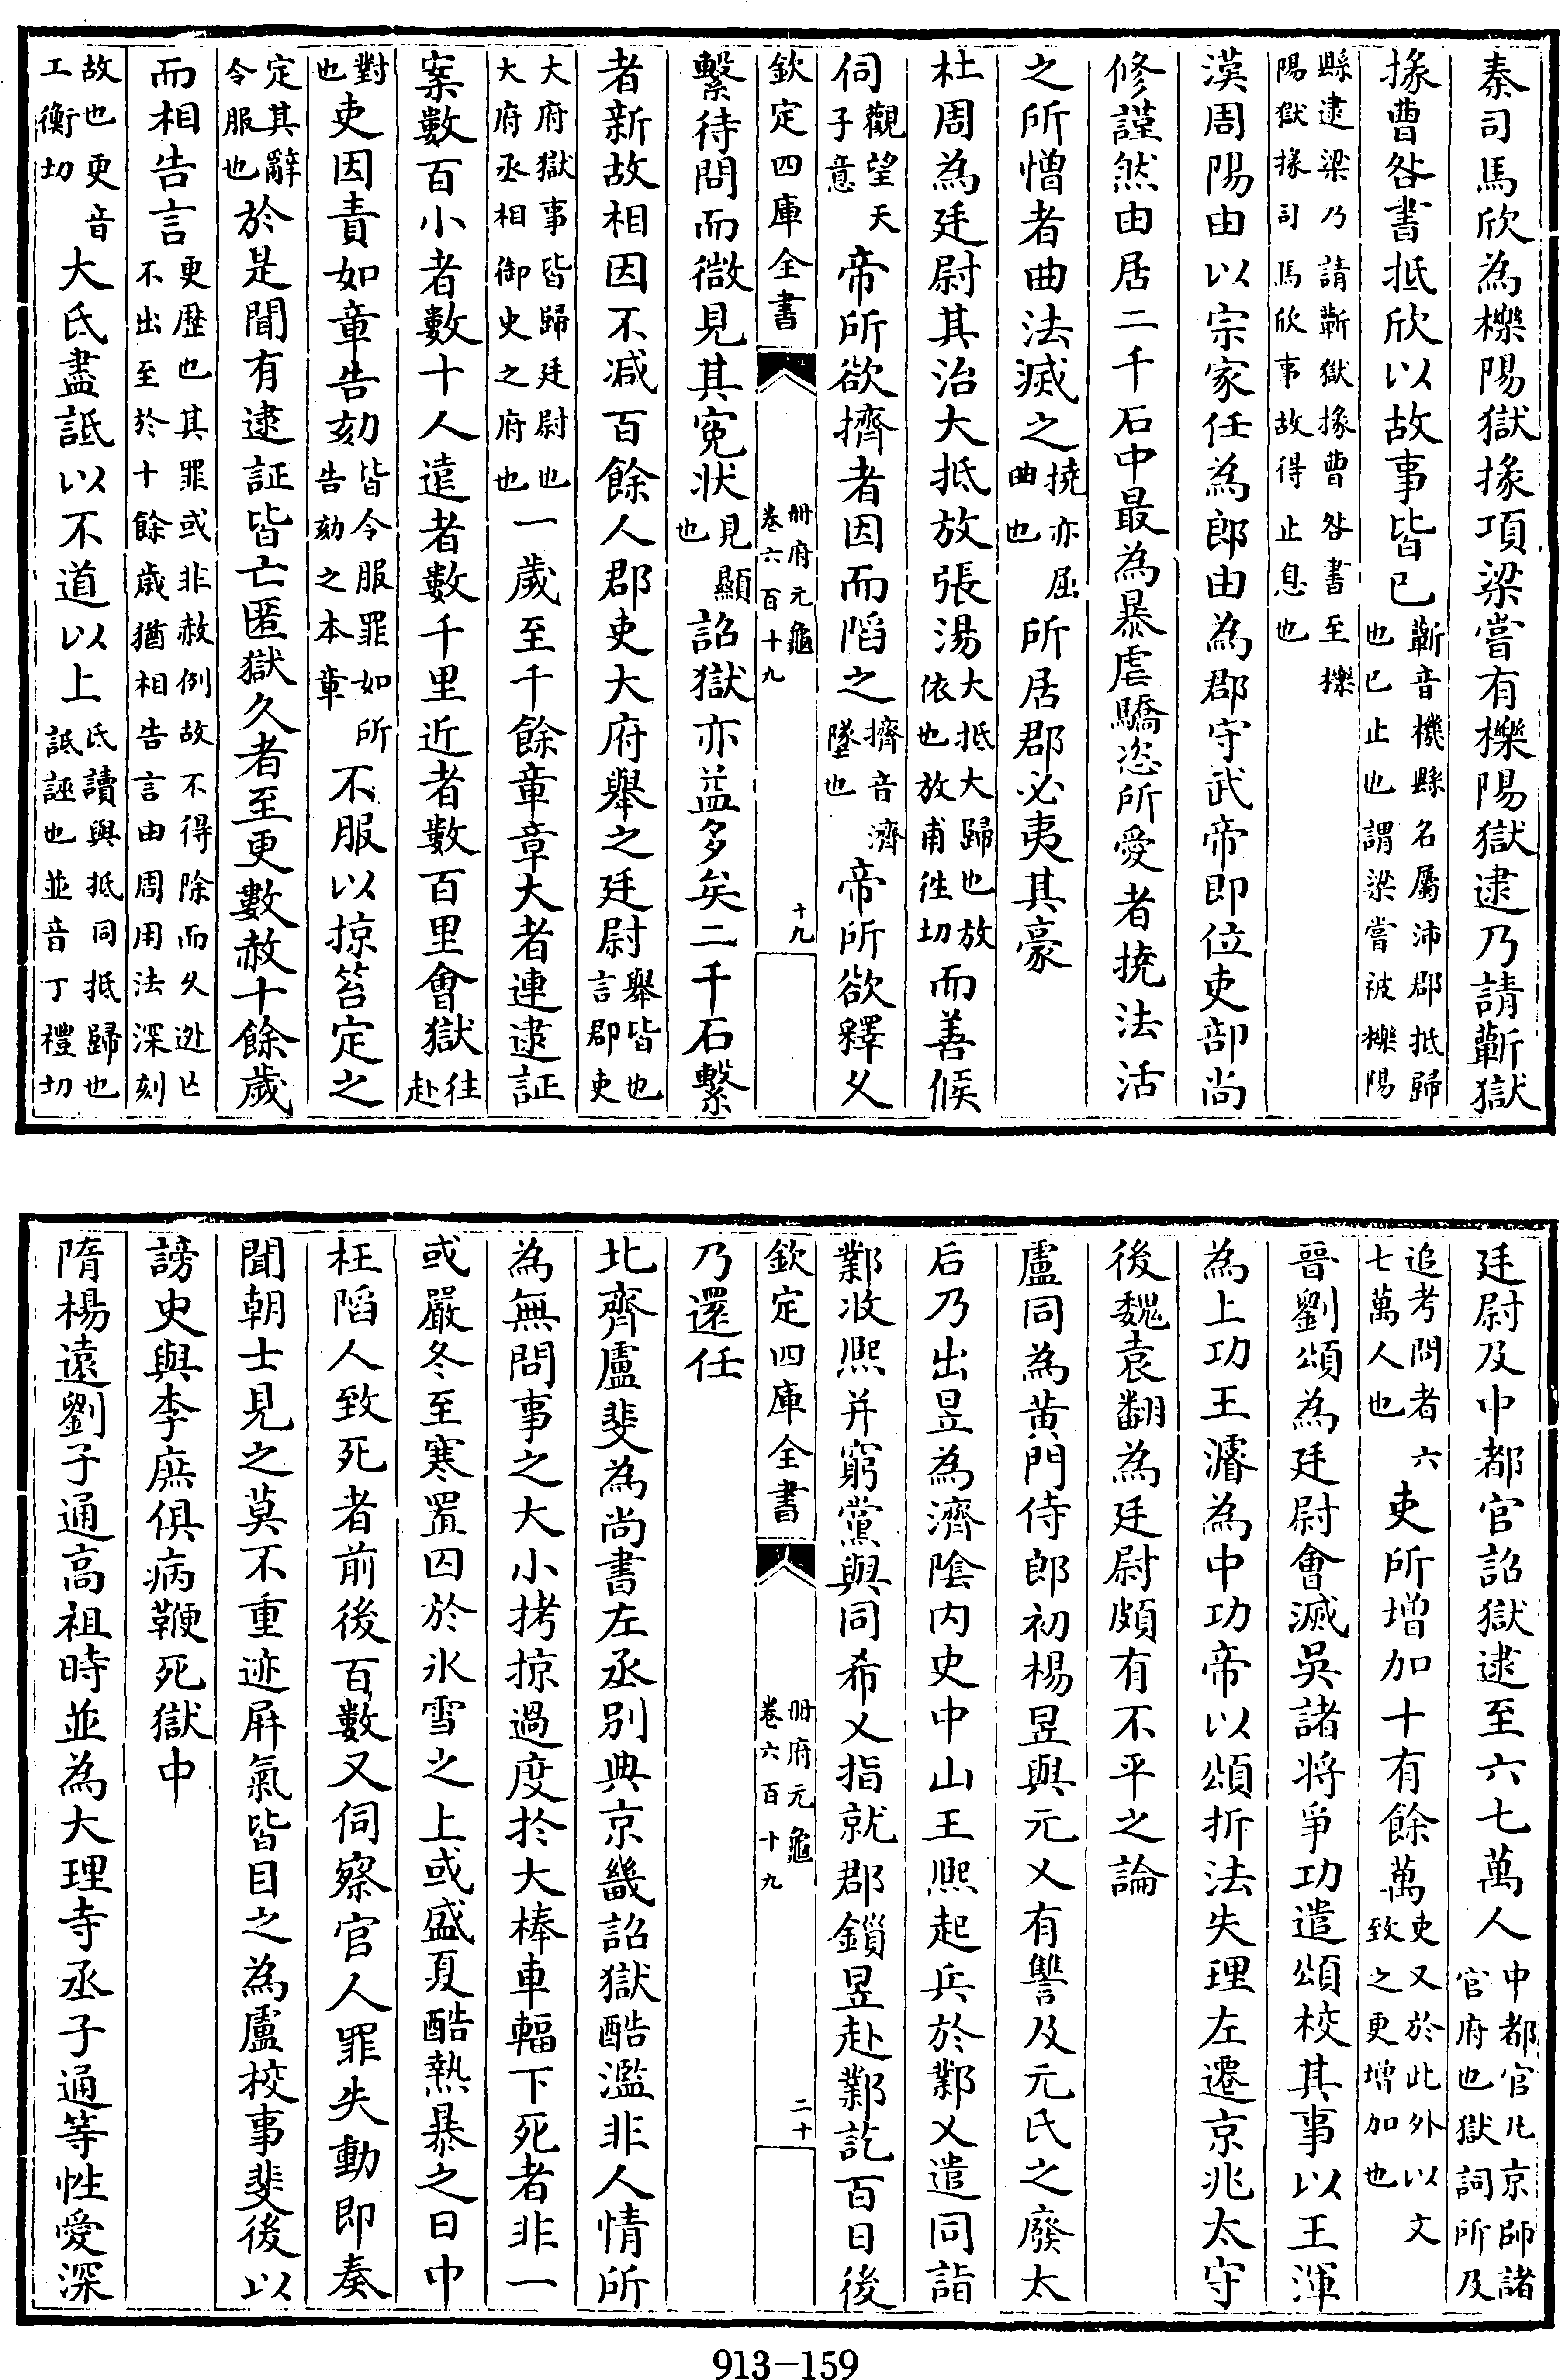 秦司馬欣為櫟陽獄掾項梁嘗有櫟陽獄逮乃請蘄獄
掾曹咎書抵欣以故事皆已蘄音機縣名屬沛郡抵歸也已止也謂梁嘗被櫟陽
縣逮梁乃請蘄獄掾曹咎書至櫟陽獄掾司馬欣事故得止息也
漢周陽由以宗家任為郎由為郡守武帝即位吏部尚
修謹然由居二千石中最為暴虐驕恣所愛者撓法活
之所憎者曲法滅之撓亦屈曲也所居郡必夷其豪
杜周為廷尉其治大抵放張湯大抵大歸也放依也放甫徃切而善候
伺觀望天子意帝所欲擠者因而䧟之擠音濟墜也帝所欲釋乆
欽定四庫全書
冊府元龜
卷六百十九
十九
繫待問而㣲見其寃状見顯也詔獄亦益多矣二千石繫
者新故相因不减百餘人郡吏大府舉之廷尉舉皆也言郡吏
大府獄事皆歸廷尉也大府丞相御史之府也一歲至千餘章章大者連逮証
案數百小者數十人遠者數千里近者數百里㑹獄往赴
對也吏因責如章告劾皆令服罪如所告劾之本章不服以掠笞定之
定其辭令服也於是聞有逮証皆亡匿獄久者至更數赦十餘歲
而相告言更歴也其罪或非赦例故不得除而乆逃亡不出至於十餘歲猶相告言由周用法深刻
故也更音工衡切大氐盡詆以不道以上氐讀與抵同抵歸也詆誣也並音丁禮切
廷尉及中都官詔獄逮至六七萬人中都官凡京師諸官府也獄詞所及
追考問者六七萬人也吏所增加十有餘萬吏又於此外以文致之更增加也
晉劉頌為廷尉㑹滅吳諸将爭功遣頌校其事以王渾
為上功王濬為中功帝以頌折法失理左遷京兆太守
後魏袁翻為廷尉頗有不平之論
盧同為黄門侍郎初楊昱與元乂有讐及元氏之廢太
后乃出昱為濟隂内史中山王熈起兵於鄴乂遣同詣
鄴收熈并窮黨與同希乂指就郡鎻昱赴鄴訖百日後
欽定四庫全書
冊府元龜
卷六百十九
二十
乃還任
北齊盧斐為尚書左丞别典京畿詔獄酷濫非人情所
為無問事之大小拷掠過度於大棒車輻下死者非一
或嚴冬至寒置囚於氷雪之上或盛夏酷熱暴之日中
枉䧟人致死者前後百數又伺察官人罪失動即奏
聞朝士見之莫不重迹屏氣皆目之為盧校事斐後以
謗史與李庶俱病鞭死獄中
隋楊遠劉子通高祖時並為大理寺丞子通等性愛深
913-159